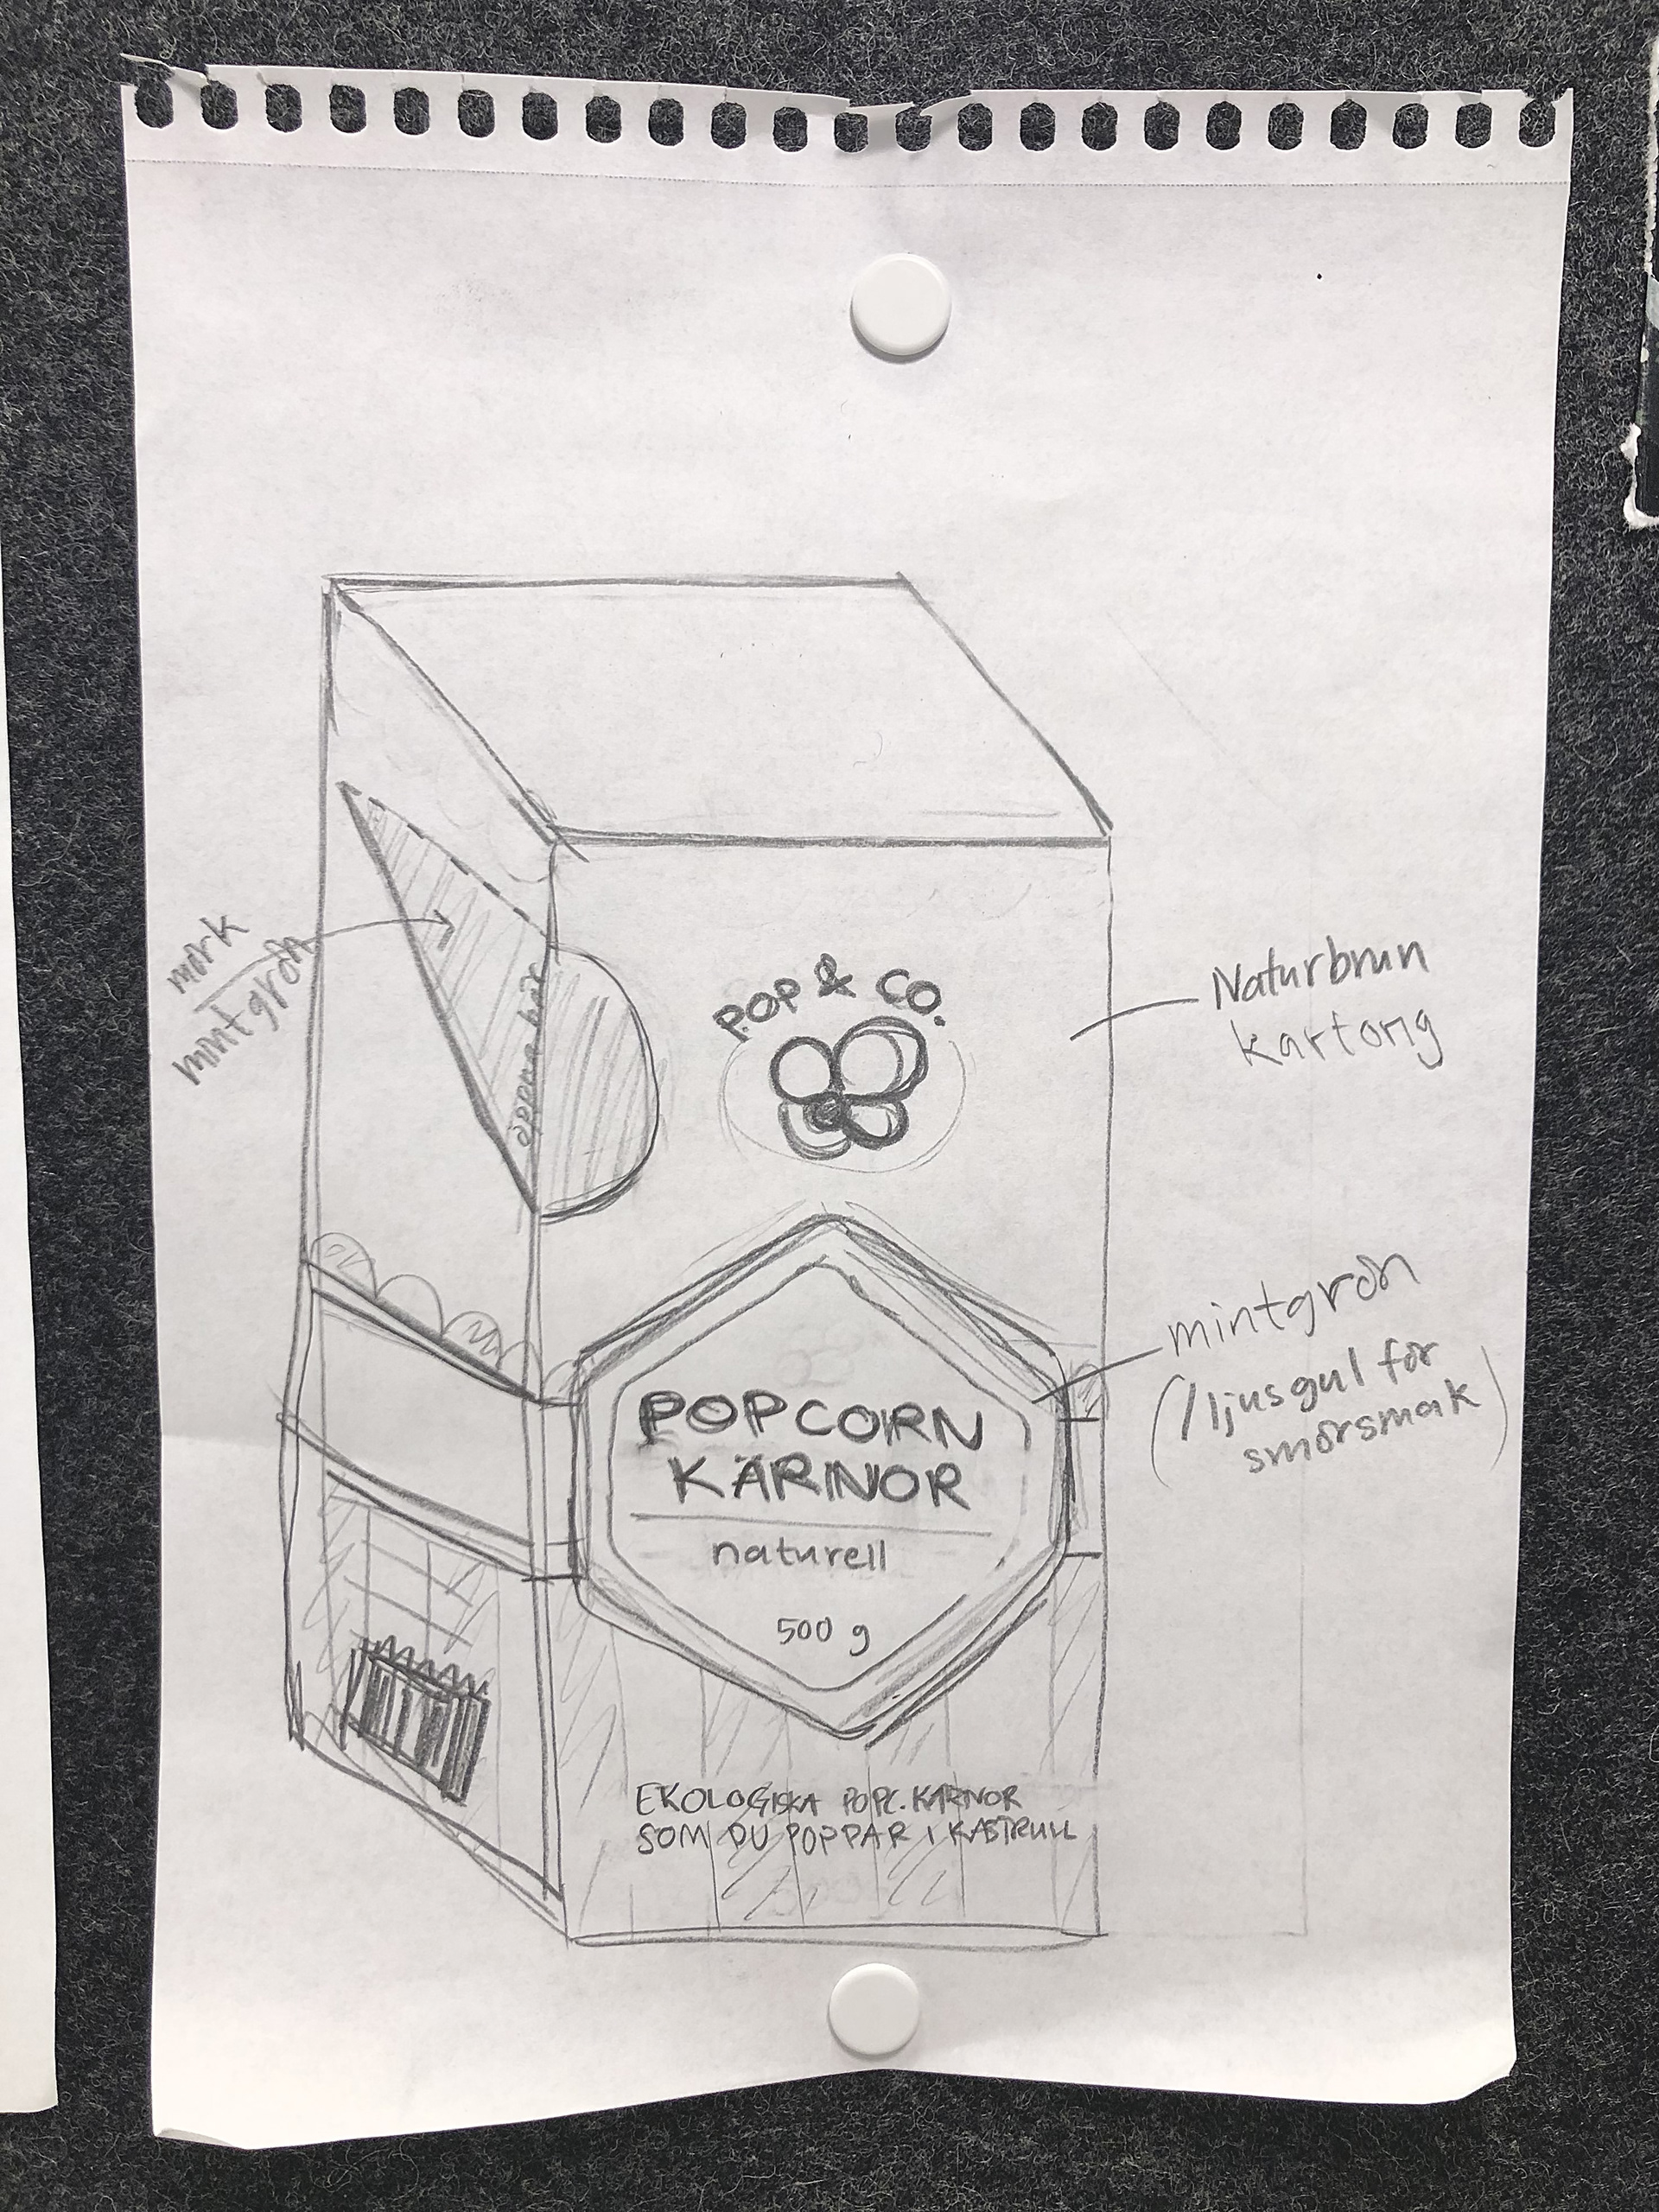 mörk
mintgrön
öppna här
POP & CO.
Naturbrun
kartong
mintgrön
(/ljusgul för
smörsmak)
POPCORN
KÄRNOR
naturell
500 g
EKOLOGISKA POPC.KÄRNOR
SOM DU POPPAR I KASTRULL